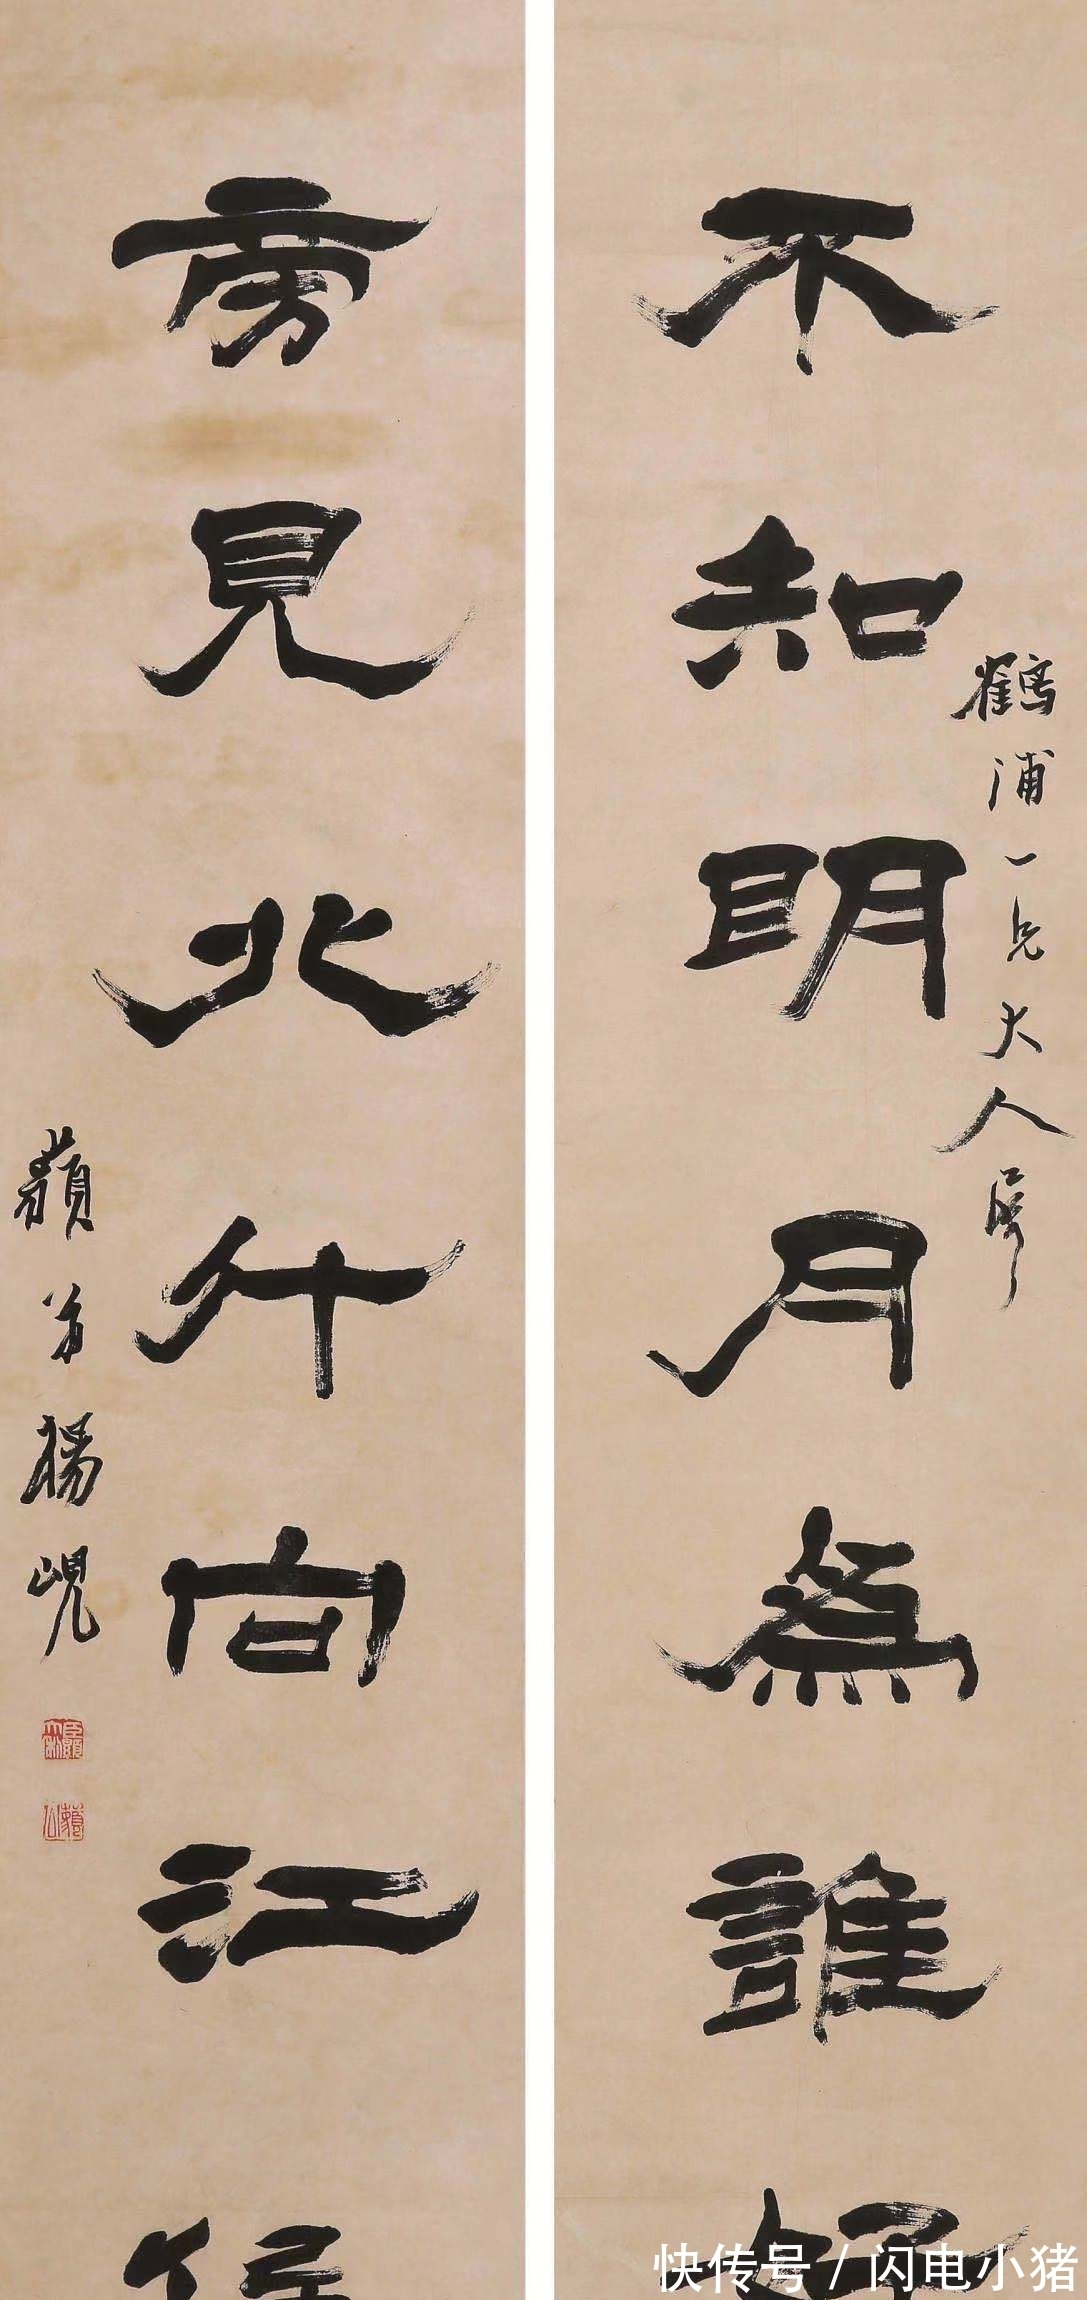 不知明月為誰好
鶴浦一兄大人屬
旁見北斗向江
藐翁楊峴
快传号 / 闪电小猪